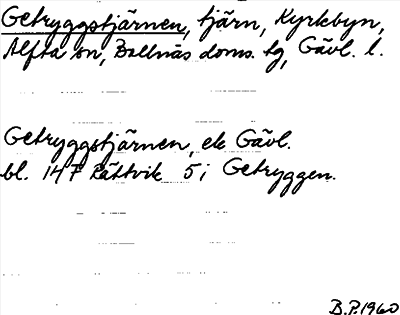 Getryggstjärnen, tjärn, Kyrkbyn,
Alfta sn, Bollnäs doms. tg, Gävl. l.
Getryggstjärnen, ek Gävl.
bl. 14 F Rättvik 5 i Getryggen.
B.P. 1960